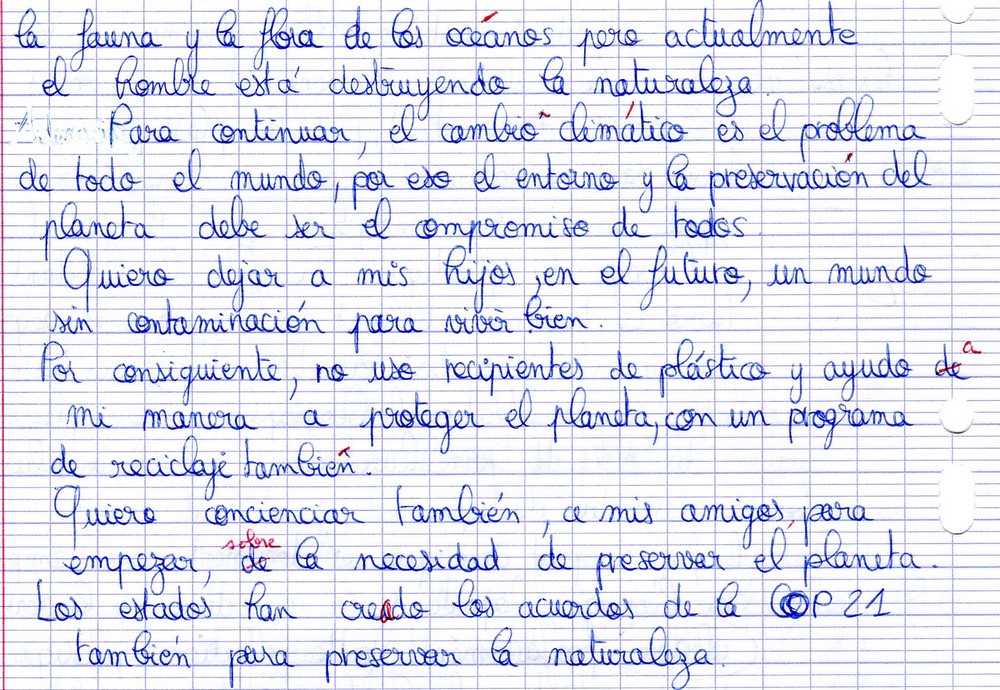 la fauna y la flora de los océanos pero actualmente
el hombre está destruyendo la naturaleza.
Para continuar, el cambio climático es el problema
de todo el mundo, por eso el entorno y la preservación del
planeta debe ser el compromiso de todos.
Quiero dejar a mis hijos, en el futuro, un mundo
sin contaminación para vivir bien.
Por consiguiente, no uso recipientes de plástico y ayudo de a
mi manera a proteger el planeta, con un programa
de reciclaje también.
Quiero concienciar también, a mis amigos, para
empezar, de sobre la necesidad de preservar el planeta.
Los estados han creado los acuerdos de la COP 21
también para preservar la naturaleza.